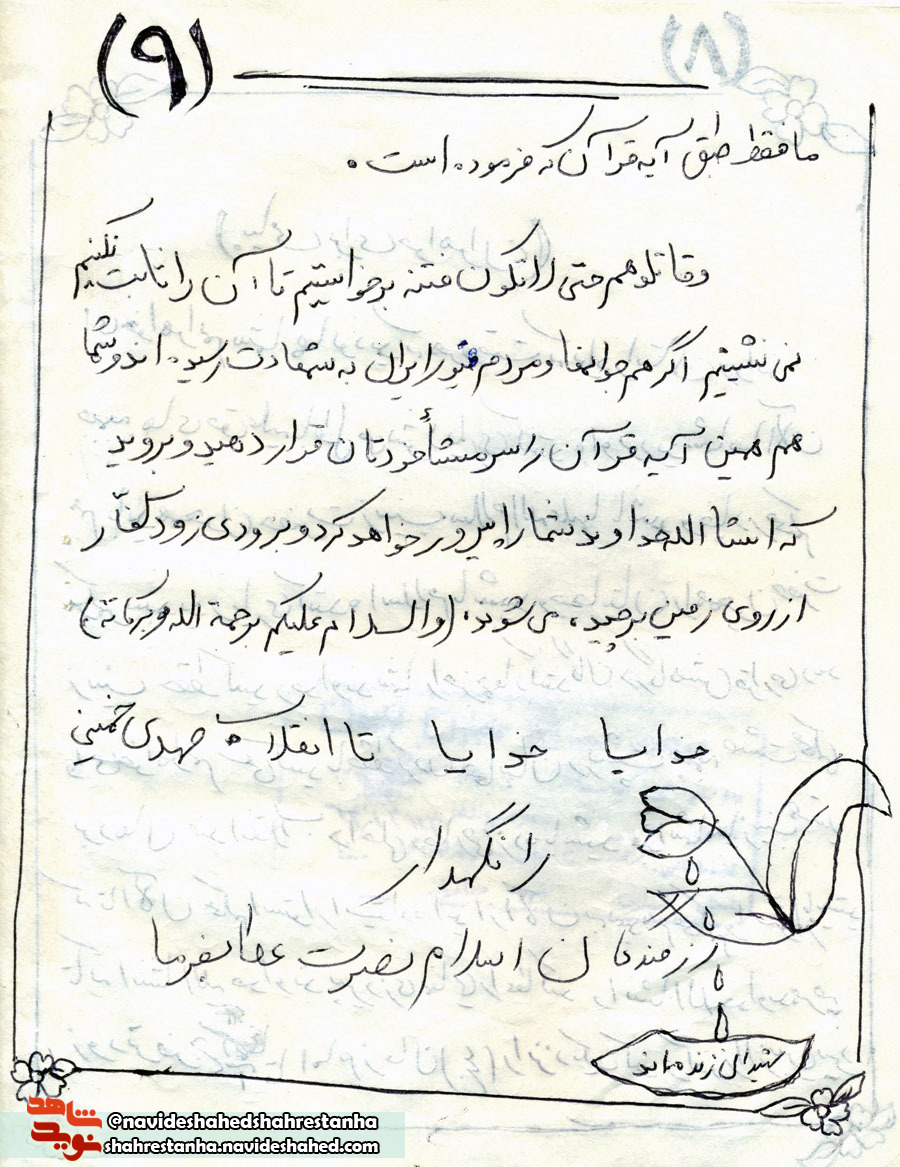 (۹)
(۸)
ما فقط طبق آیه قرآن که فرموده است.
وقاتلوهم حتی لاتکون فتنه برخواستیم تا آن را ثابت نکنیم
نمی نشینیم اگر هم جوانها و مردم غیور ایران به شهادت رسیده اند و شما
هم همین آیه قرآن را سرمنشأ خودتان قرار دهید و بروید
که انشا الله خداوند شما را پیروز خواهد کرد و بزودی زود کفّار
از روی زمین برچیده می شوند. (والسلام علیکم برحمة الله و برکاته)
خدایا خدایا تا انقلاب مهدی خمینی
را نگهدار
رزمندگان اسلام نصرت عطا بفرما
شهیدان زنده اند
شاهد
نوید
@navideshahedshahrestanha
shahrestanha.navideshahed.com